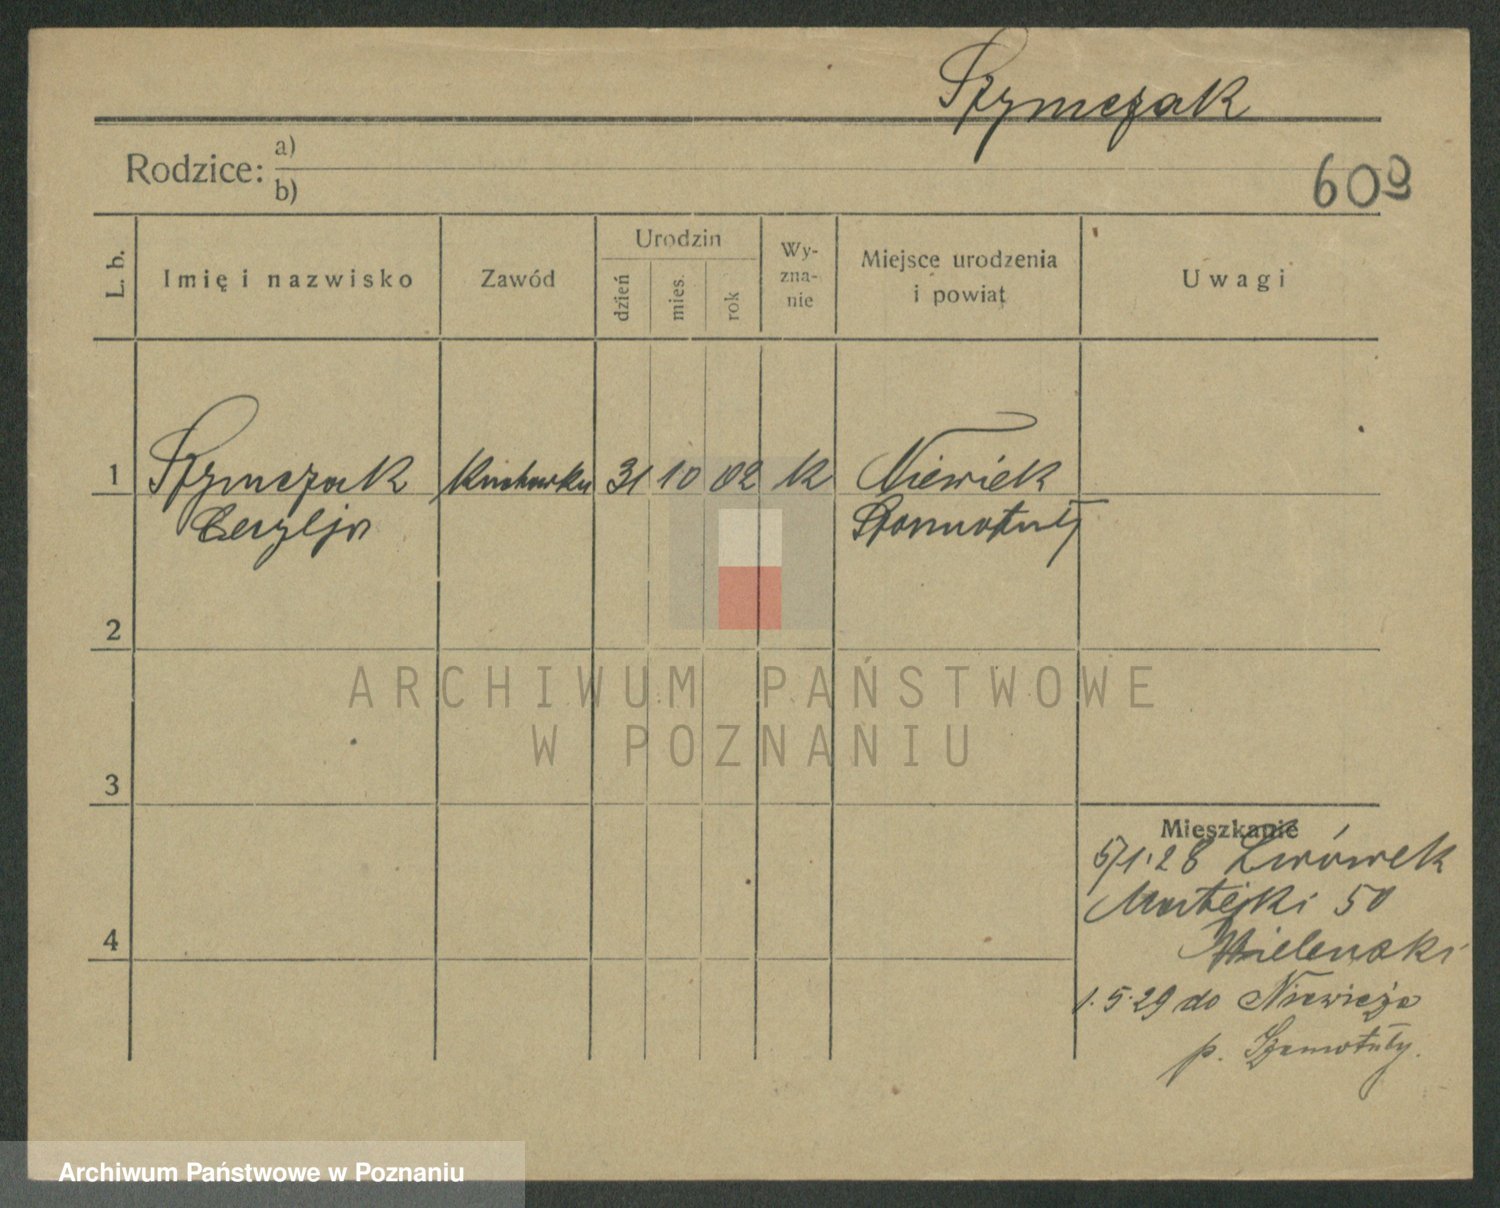 Szymczak
Rodzice: a)
b)
609
L. b.
Imię i nazwisko
Zawód
Urodzin
dzień
mies.
rok
Wy-
zna-
nie
Miejsce urodzenia
i powiat
Uwagi
1 Szymczak Kucharka 31 10 02 k
Cecylja Szamotuły
2
3
4
Mieszkanie
5/1.28 Lwówek
Matejki 50
Wielenski
1.5.29 do
p. Szamotuły.
ARCHIWUM PAŃSTWOWE
W POZNANIU
Archiwum Państwowe w Poznaniu